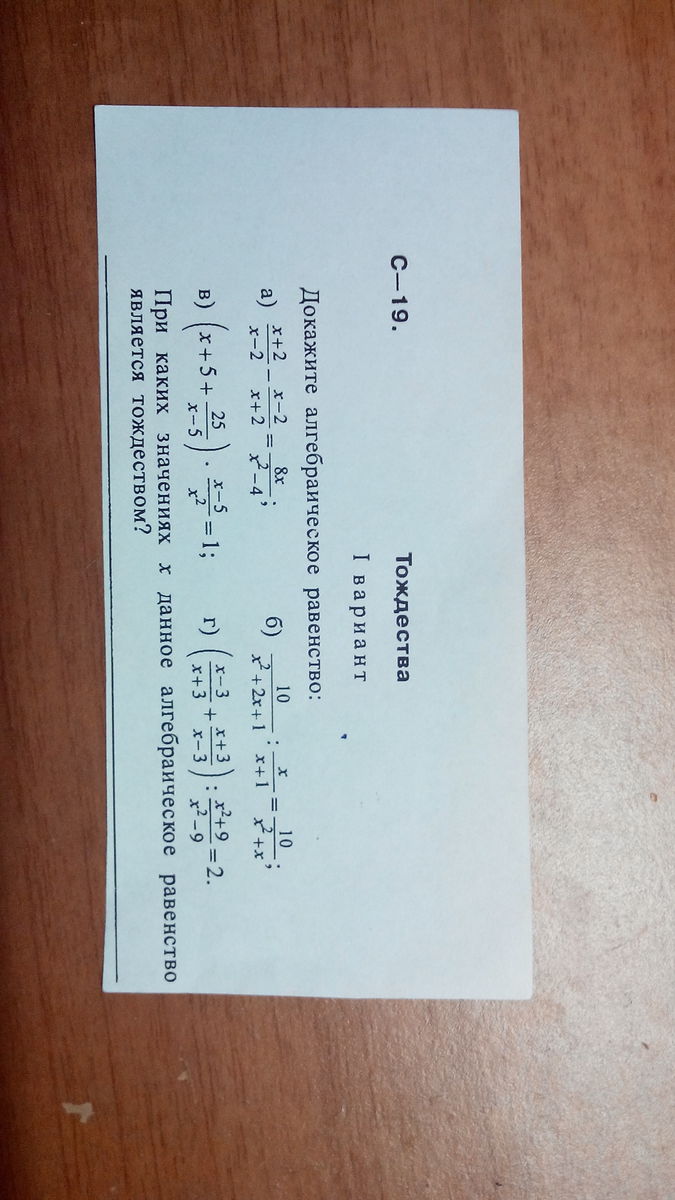 С—19.
Тождества
I вариант
Докажите алгебраическое равенство:
а) \frac{x+2}{x-2} - \frac{x-2}{x+2} = \frac{8x}{x^2-4}; б) \frac{10}{x^2+2x+1} : \frac{x}{x+1} = \frac{10}{x^2+x};
в) \left(x+5+\frac{25}{x-5}\right) \cdot \frac{x-5}{x^2} = 1; г) \left(\frac{x-3}{x+3}+\frac{x+3}{x-3}\right) : \frac{x^2+9}{x^2-9} = 2.
При каких значениях x данное алгебраическое равенство
является тождеством?